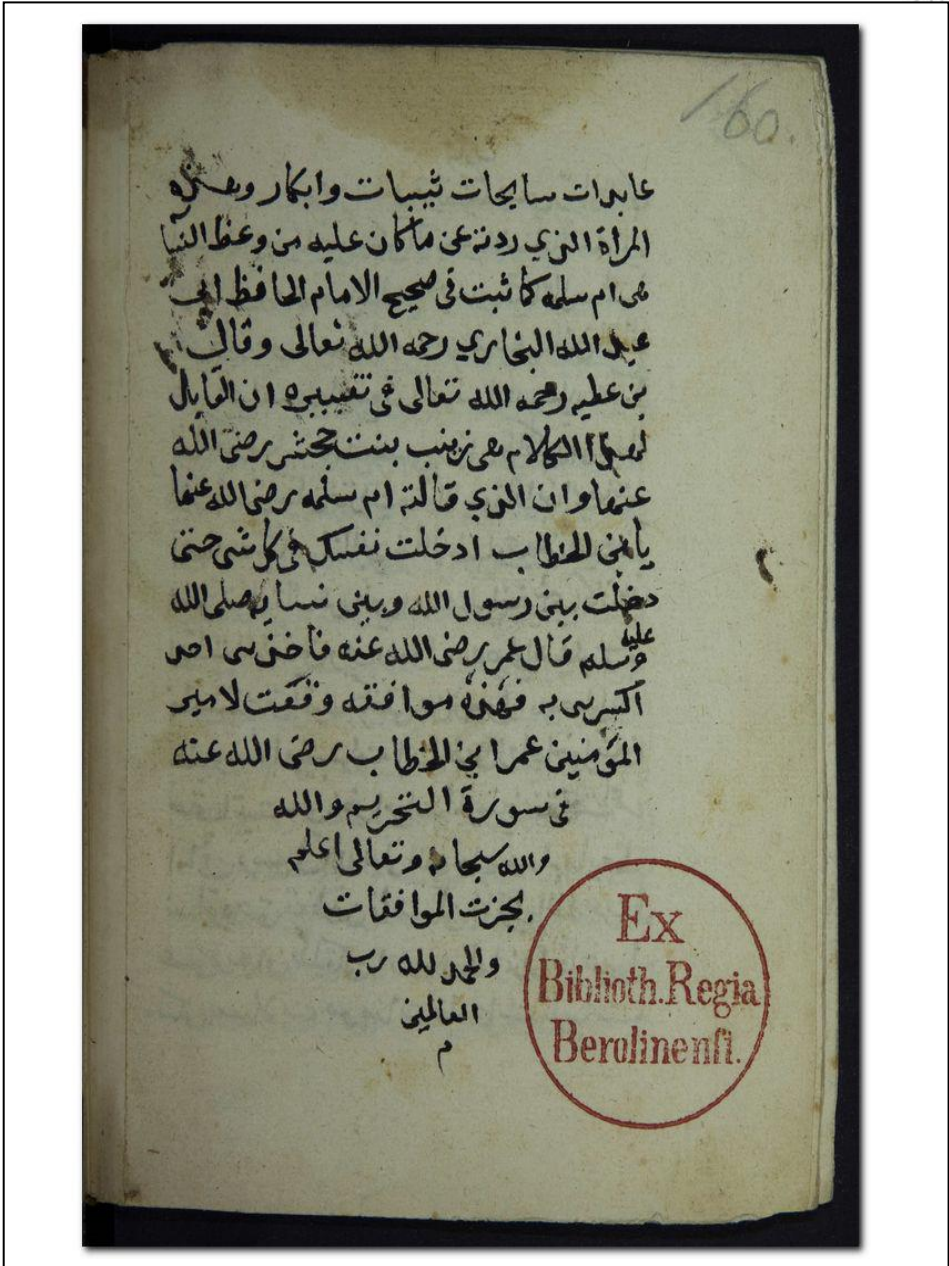 160.
عابدات سايحات ثيبات وابكار وهذه
المراة الذي ردته عن ما كان عليه من وعظ النسا
هى ام سلمه كما ثبت فى صحيح الامام الحافظ ابى
عبد الله البخاري رحمه الله تعالى وقال
بن عطيه رحمه الله تعالى فى تفسيره ان القايل
لهذا الكلام هى زينب بنت جحش رضى الله
عنها وان الذي قالته ام سلمه رضى الله عنها
يا بن الخطاب ادخلت نفسك فى كل شى حتى
دخلت بين رسول الله وبين نسايه صلى الله
عليه
وسلم قال عمر رضى الله عنه فاخذ
به فهذه موافقه وقعت لامير
المؤمنين عمر ابن الخطاب رضى الله عنه
فى سورة التحريم والله
والله سبحانه وتعالى اعلم
نجزت الموافقات
والحمد لله رب
العالمين
م
Ex
Biblioth. Regia
Berolinensi.